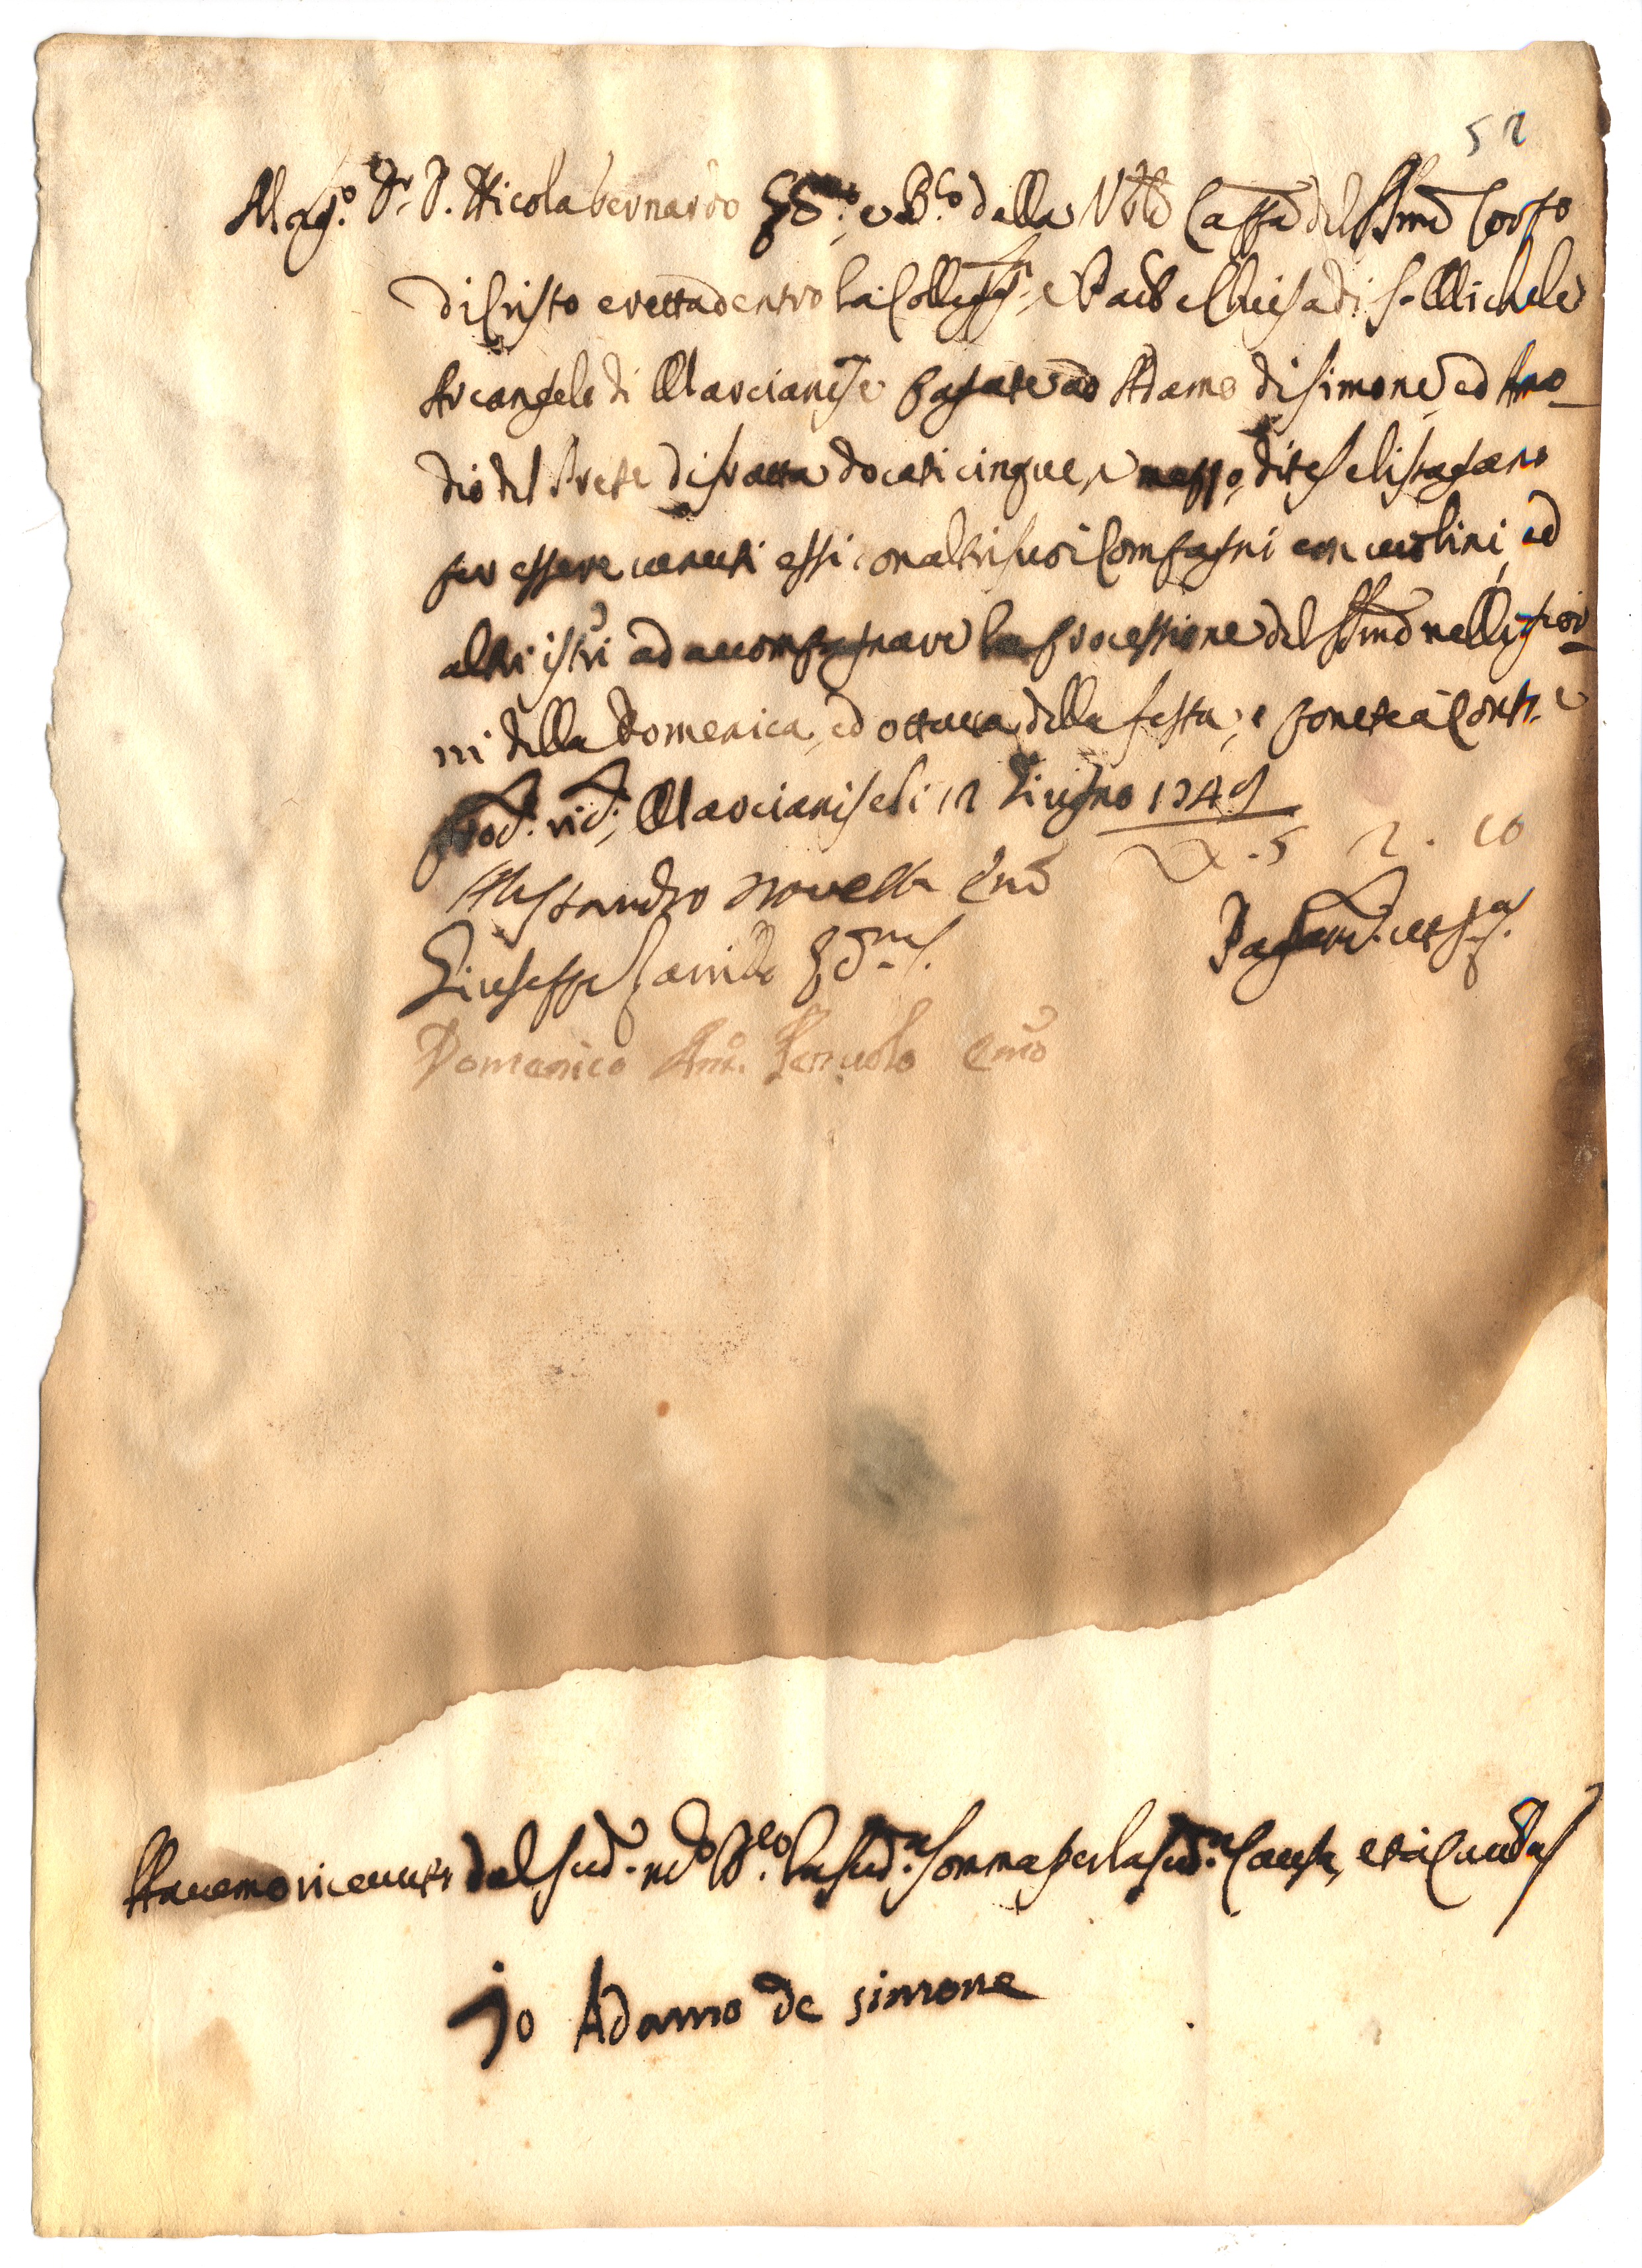 52
Mag.co Dr. D. Nicola bernardo ec.o, e B.lo della Vble Cappa del SSmo Corpo
di Cristo eretta dentro la Colleg.ta, e Paule Chiesa di S. Michele
Arcangelo di Marcianise pagate ad Adamo di Simone, ed Ama-
dio del Prete di fratta docati cinque, e mezzo, dite se li pagano
per essere venuti essi con altri suoi Compagni con violini, ed
altri istri ad accompagnare la processione del SSmo nelli gior-
ni della Domenica, ed ottava della festa, e ponete à Conto
prod. vid., Marcianise li 12 Giugno 1749
D. 5 2. 10
Alessandro Novelli
Giuseppe
Pagherà ut s.a
Domenico Ant.
Havemo ricevuti dal sud. md.o B.lo la sud.a somma per la sud.a Causa, et in
Io Adamo de simone